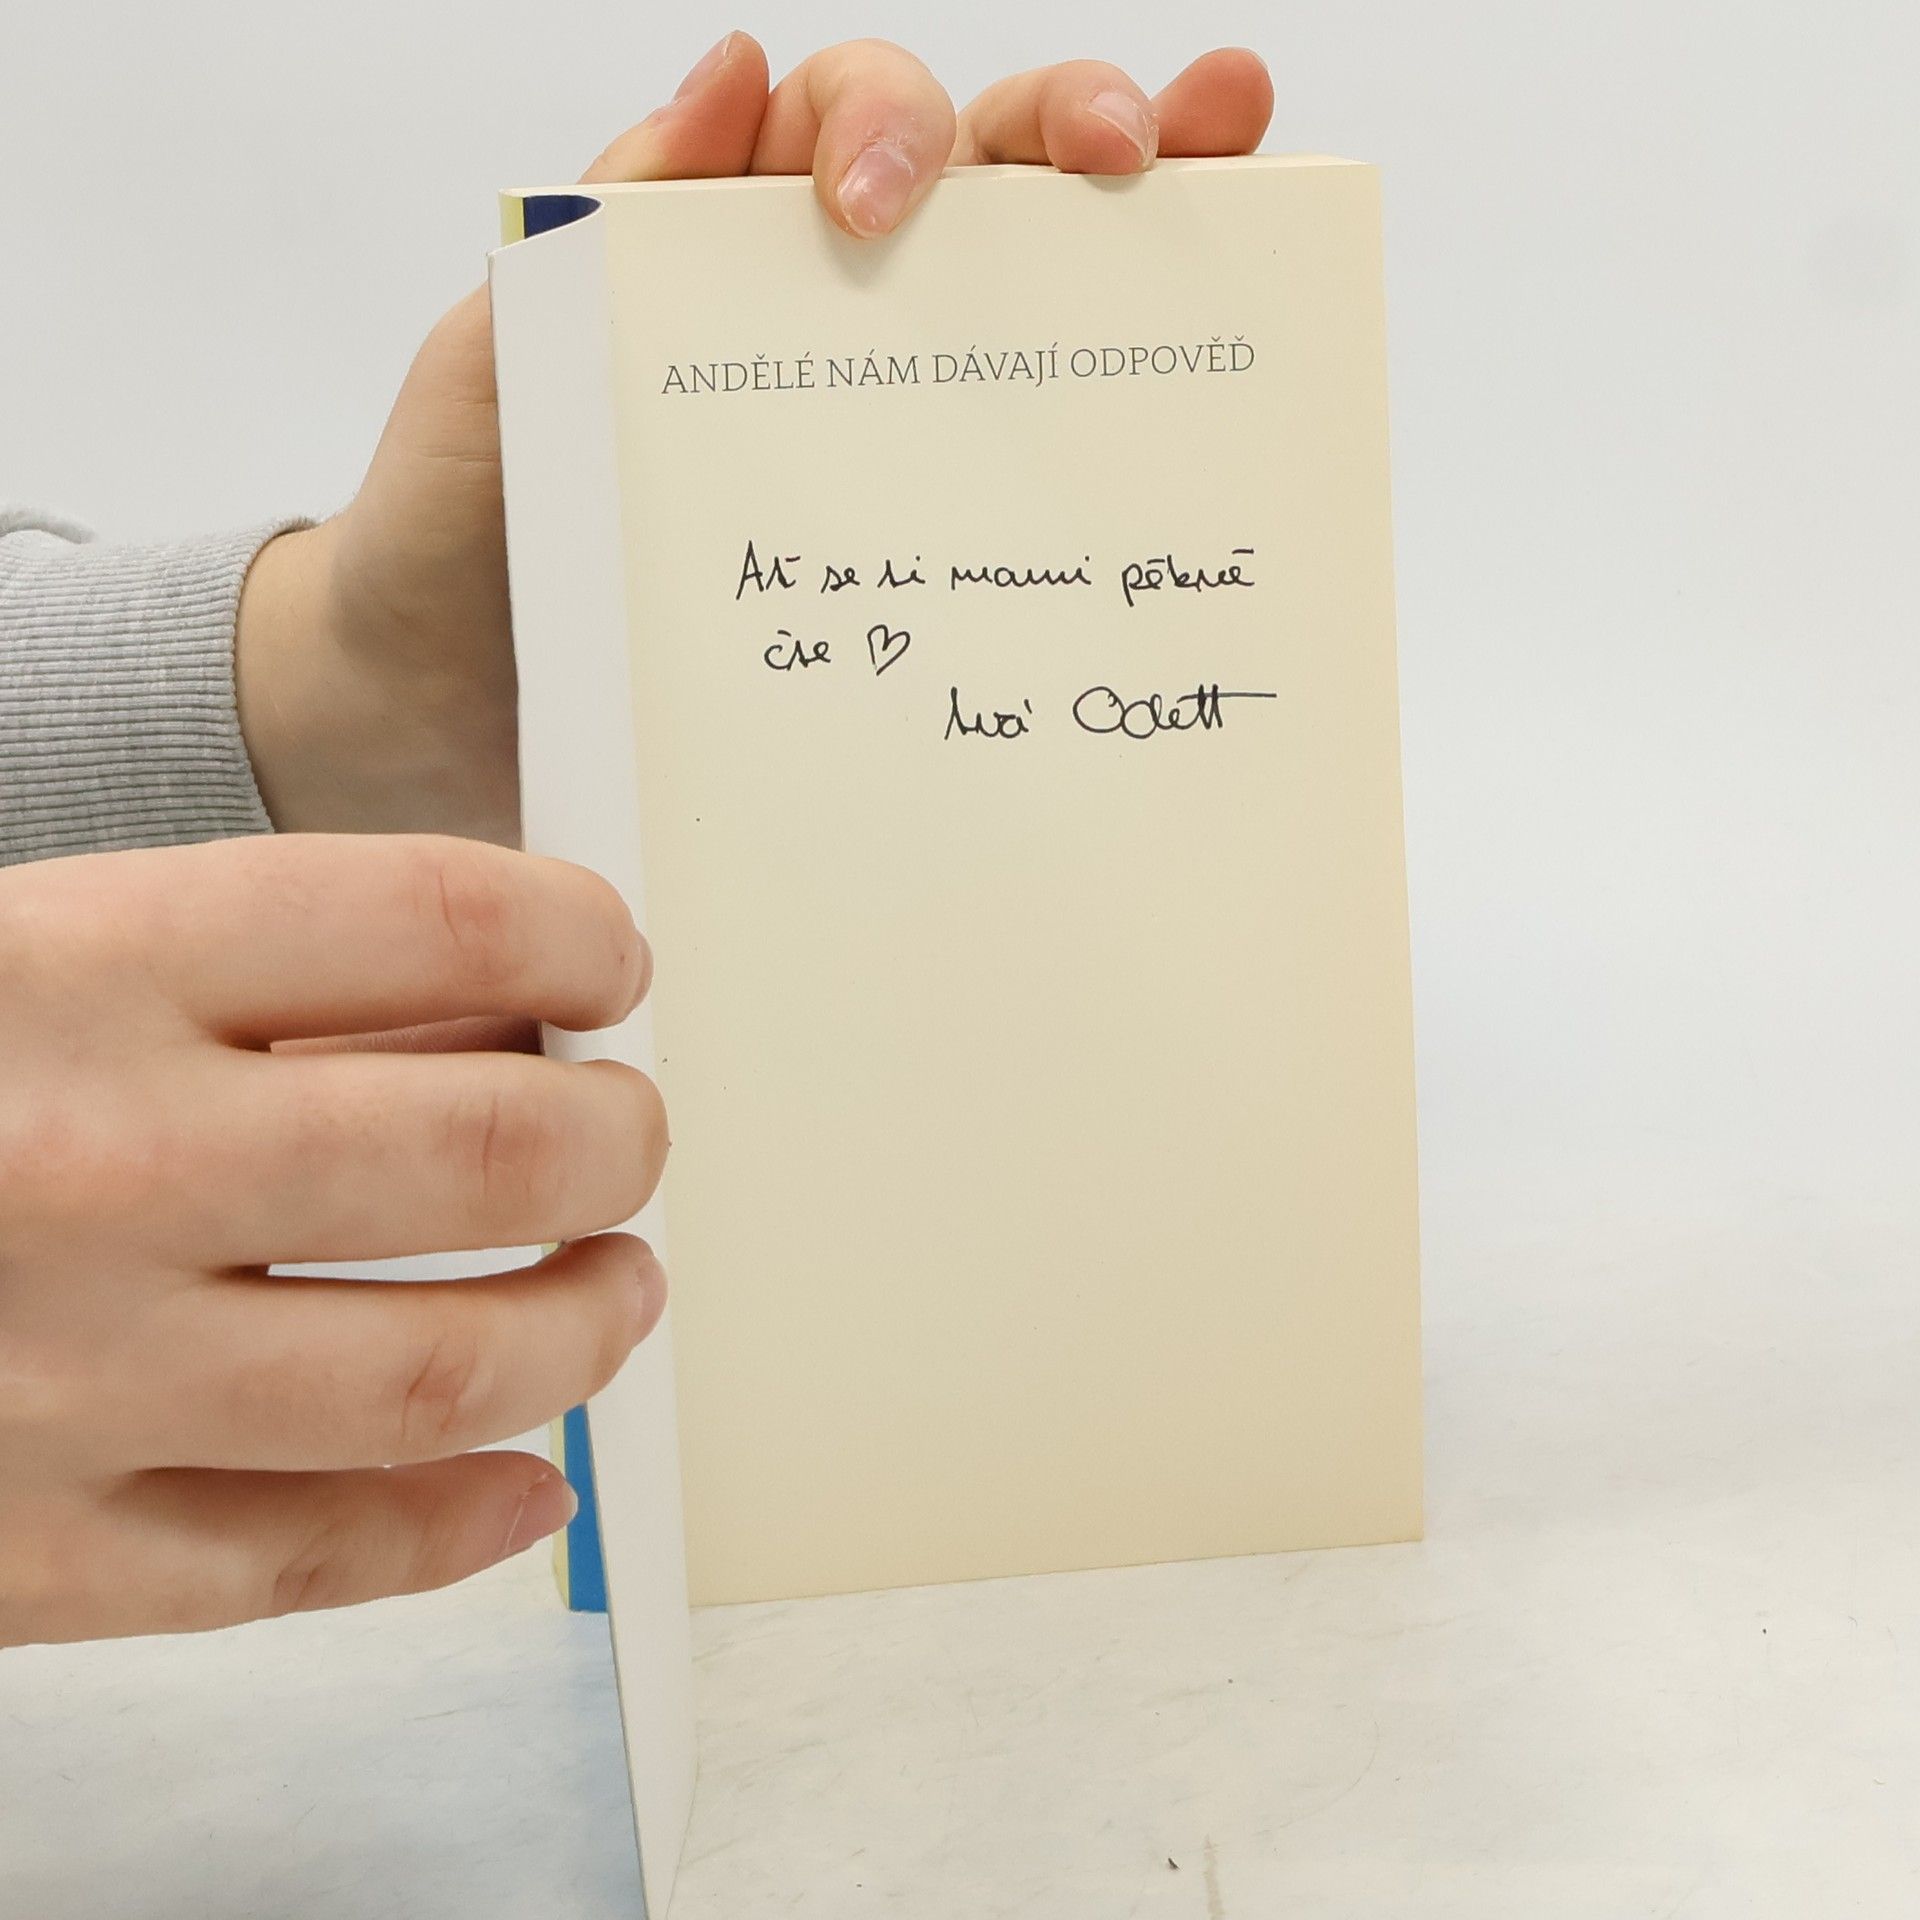 ANDĚLÉ NÁM DÁVAJÍ ODPOVĚĎ
Ať se ti mami pěkně
čte ♡
tvá Odett